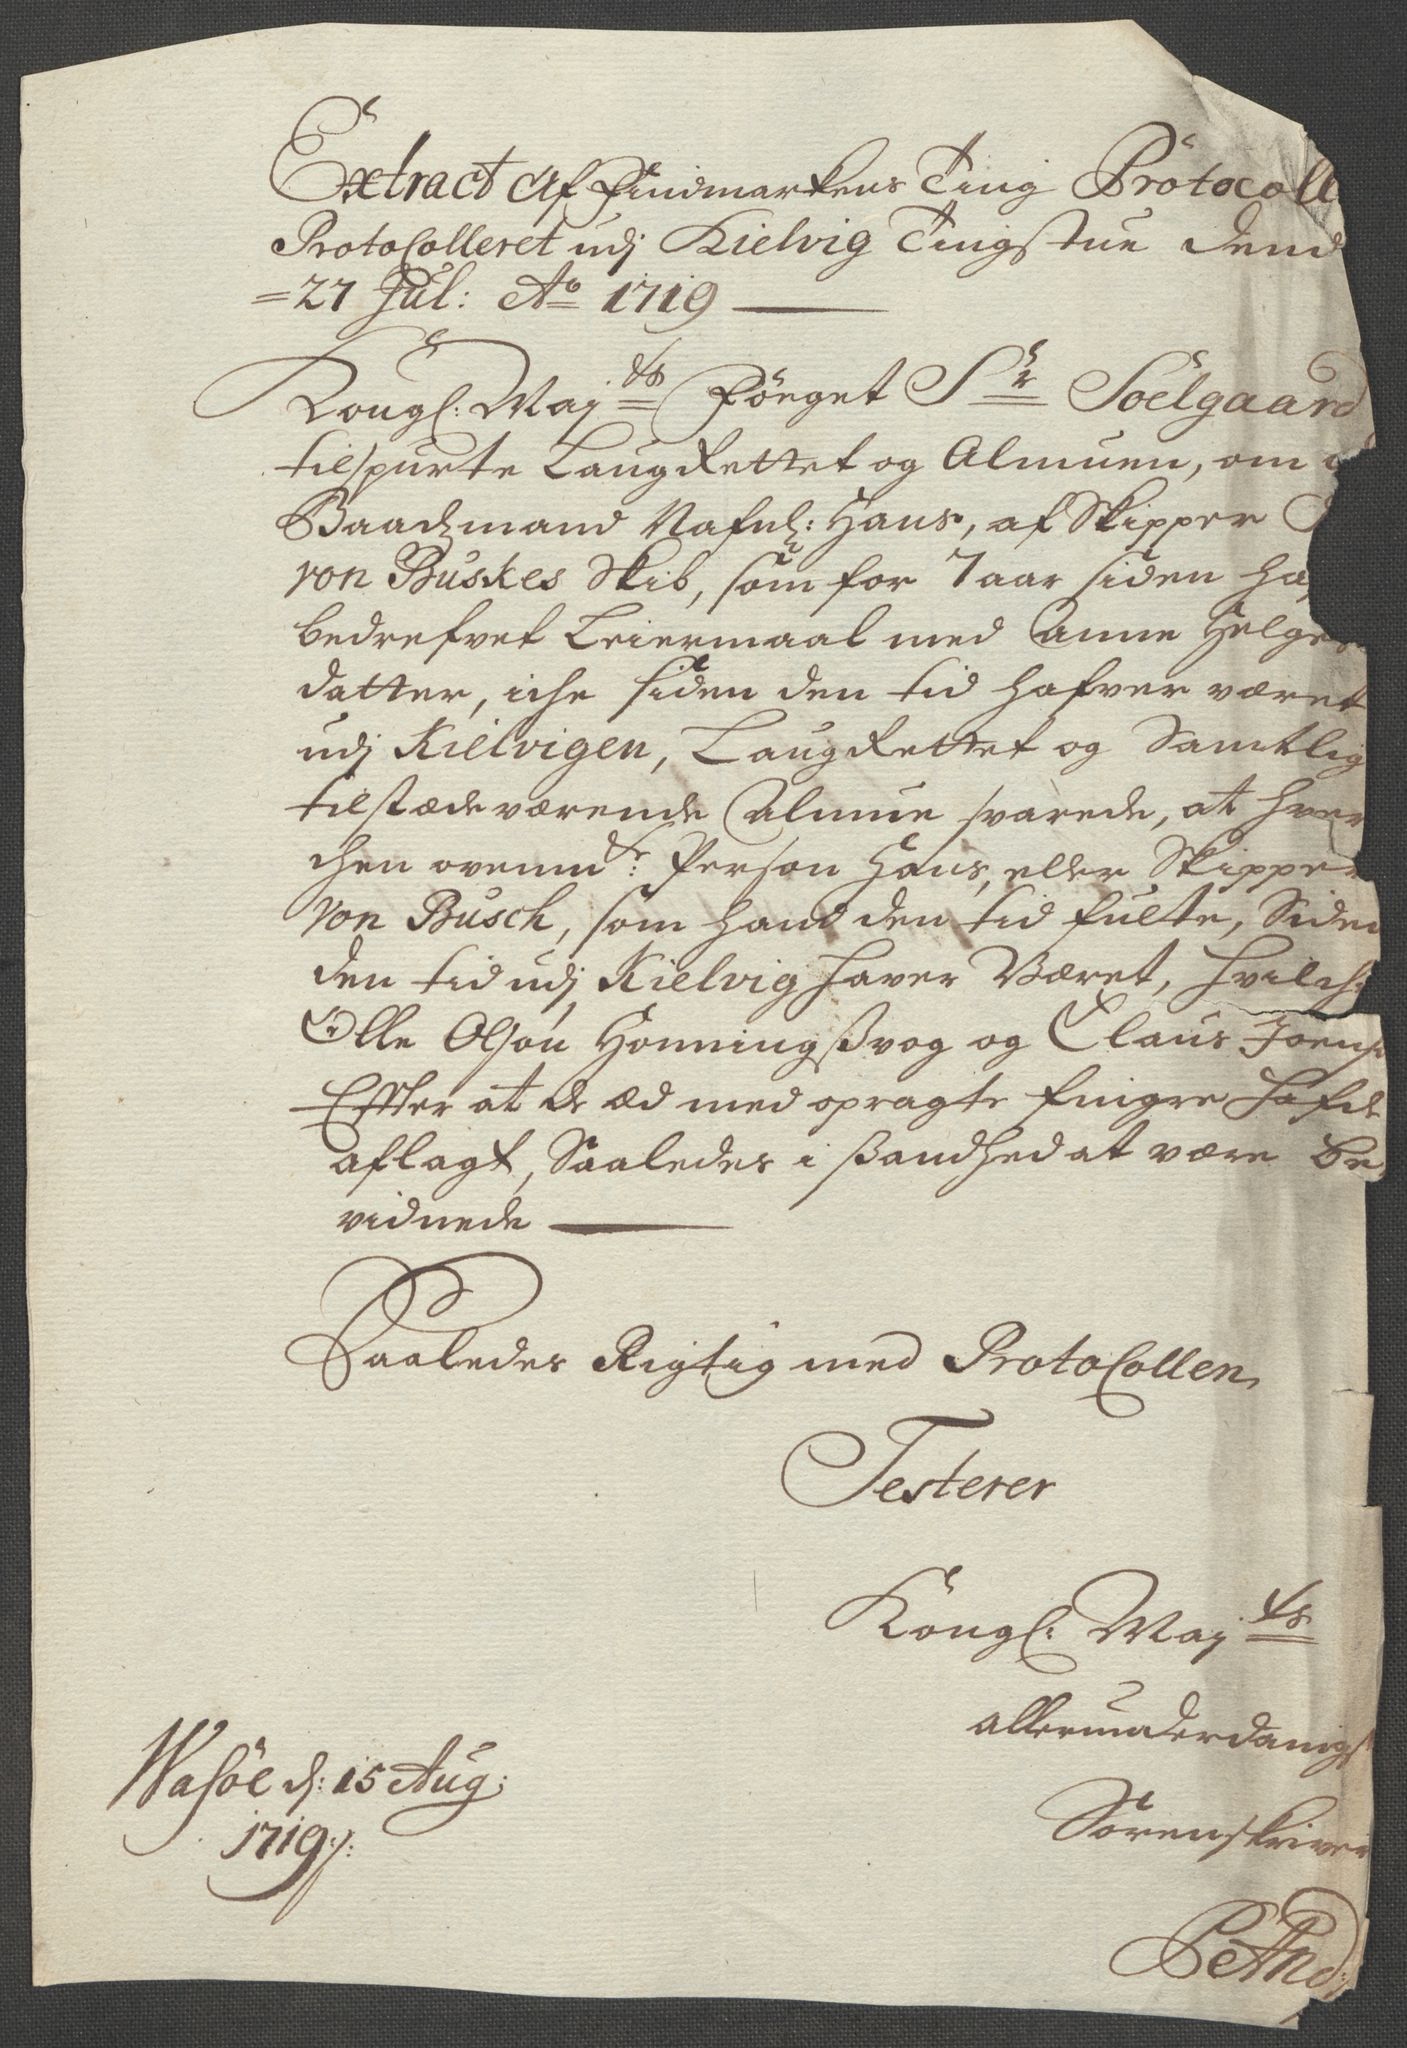 Extract Af Findmarkens Ting Protocoll
Protocolleret udj Kielvig Tingstue dend
=27 Jul: Ao 1719
Kongl: May ts Foget Sr Söelgaard
tilspurte Laugrettet og Almuen, om
Baadzmand Nafnl: Hans, af Skipper
von Buskes Skib, som for 7 aar siden ha
bedrefvet Leiermaal med Anne Helges
datter, iche siden den tid hafver været
udj Kielvigen, Laugrettet og Samtlig
tilstædeværende Almue svarede, at hver
chen ovenmt: Person Hans, eller Skipper
von Busch, som hand den tid fulte, Siden
den tid udj Kielvig haver Været, hvilche
Olle Olsøn Honningßvog og Claus Joens
Effter at de æd med opragte fingre hafde
aflagt, Saaledes i ßandhed at være be
vidnede
Saaledes Rigtig med Protocollen
Testerer
Kongl: May ts
allerunderdanigst
Sorenskriver
Wasöe d: 15 Aug:
1719:/:
P And: